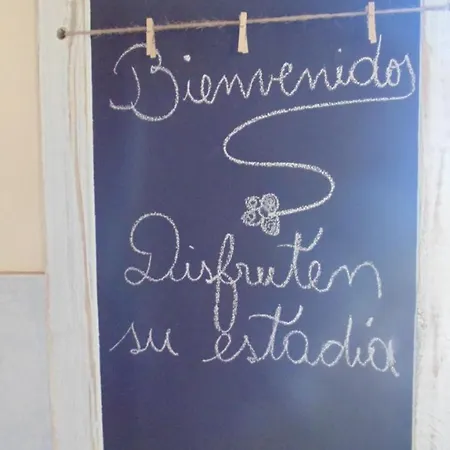 Bienvenidos
Disfruten
su estadía